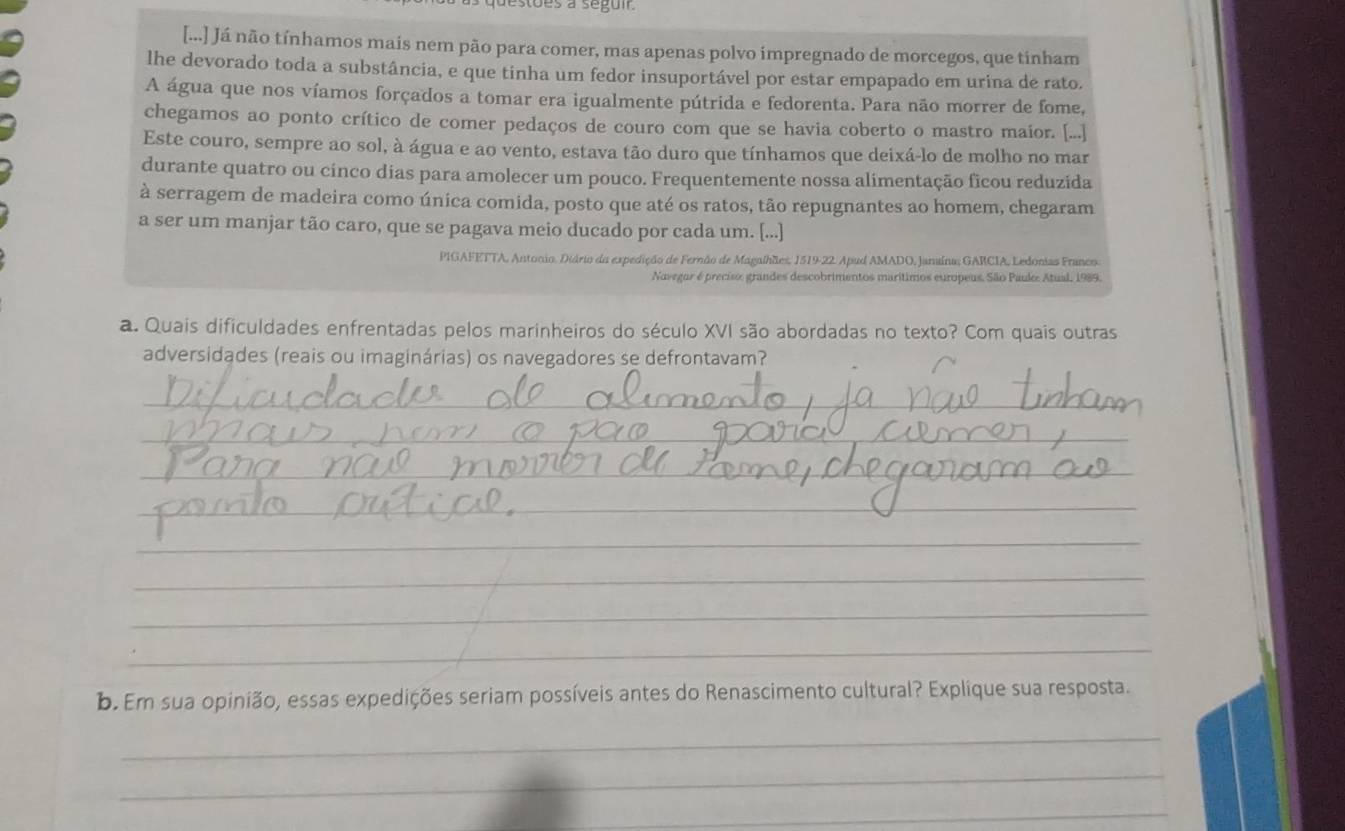 questões a seguir.
[...] Já não tínhamos mais nem pão para comer, mas apenas polvo impregnado de morcegos, que tinham
lhe devorado toda a substância, e que tinha um fedor insuportável por estar empapado em urina de rato.
A água que nos víamos forçados a tomar era igualmente pútrida e fedorenta. Para não morrer de fome,
chegamos ao ponto crítico de comer pedaços de couro com que se havia coberto o mastro maior. [...]
Este couro, sempre ao sol, à água e ao vento, estava tão duro que tínhamos que deixá-lo de molho no mar
durante quatro ou cinco dias para amolecer um pouco. Frequentemente nossa alimentação ficou reduzida
à serragem de madeira como única comida, posto que até os ratos, tão repugnantes ao homem, chegaram
a ser um manjar tão caro, que se pagava meio ducado por cada um. [...]
PIGAFETTA, Antonio. Diário da expedição de Fernão de Magalhães, 1519-22. Apud AMADO, Janaína; GARCIA, Ledonias Franco.
Navegar é preciso: grandes descobrimentos marítimos europeus. São Paulo: Atual, 1989.
a. Quais dificuldades enfrentadas pelos marinheiros do século XVI são abordadas no texto? Com quais outras
adversidades (reais ou imaginárias) os navegadores se defrontavam?
Dificudades de alimento, ja não tinham
mais nem o pao para comer,
Para não morrer de fome, chegaram ao
ponto critico.
b. Em sua opinião, essas expedições seriam possíveis antes do Renascimento cultural? Explique sua resposta.